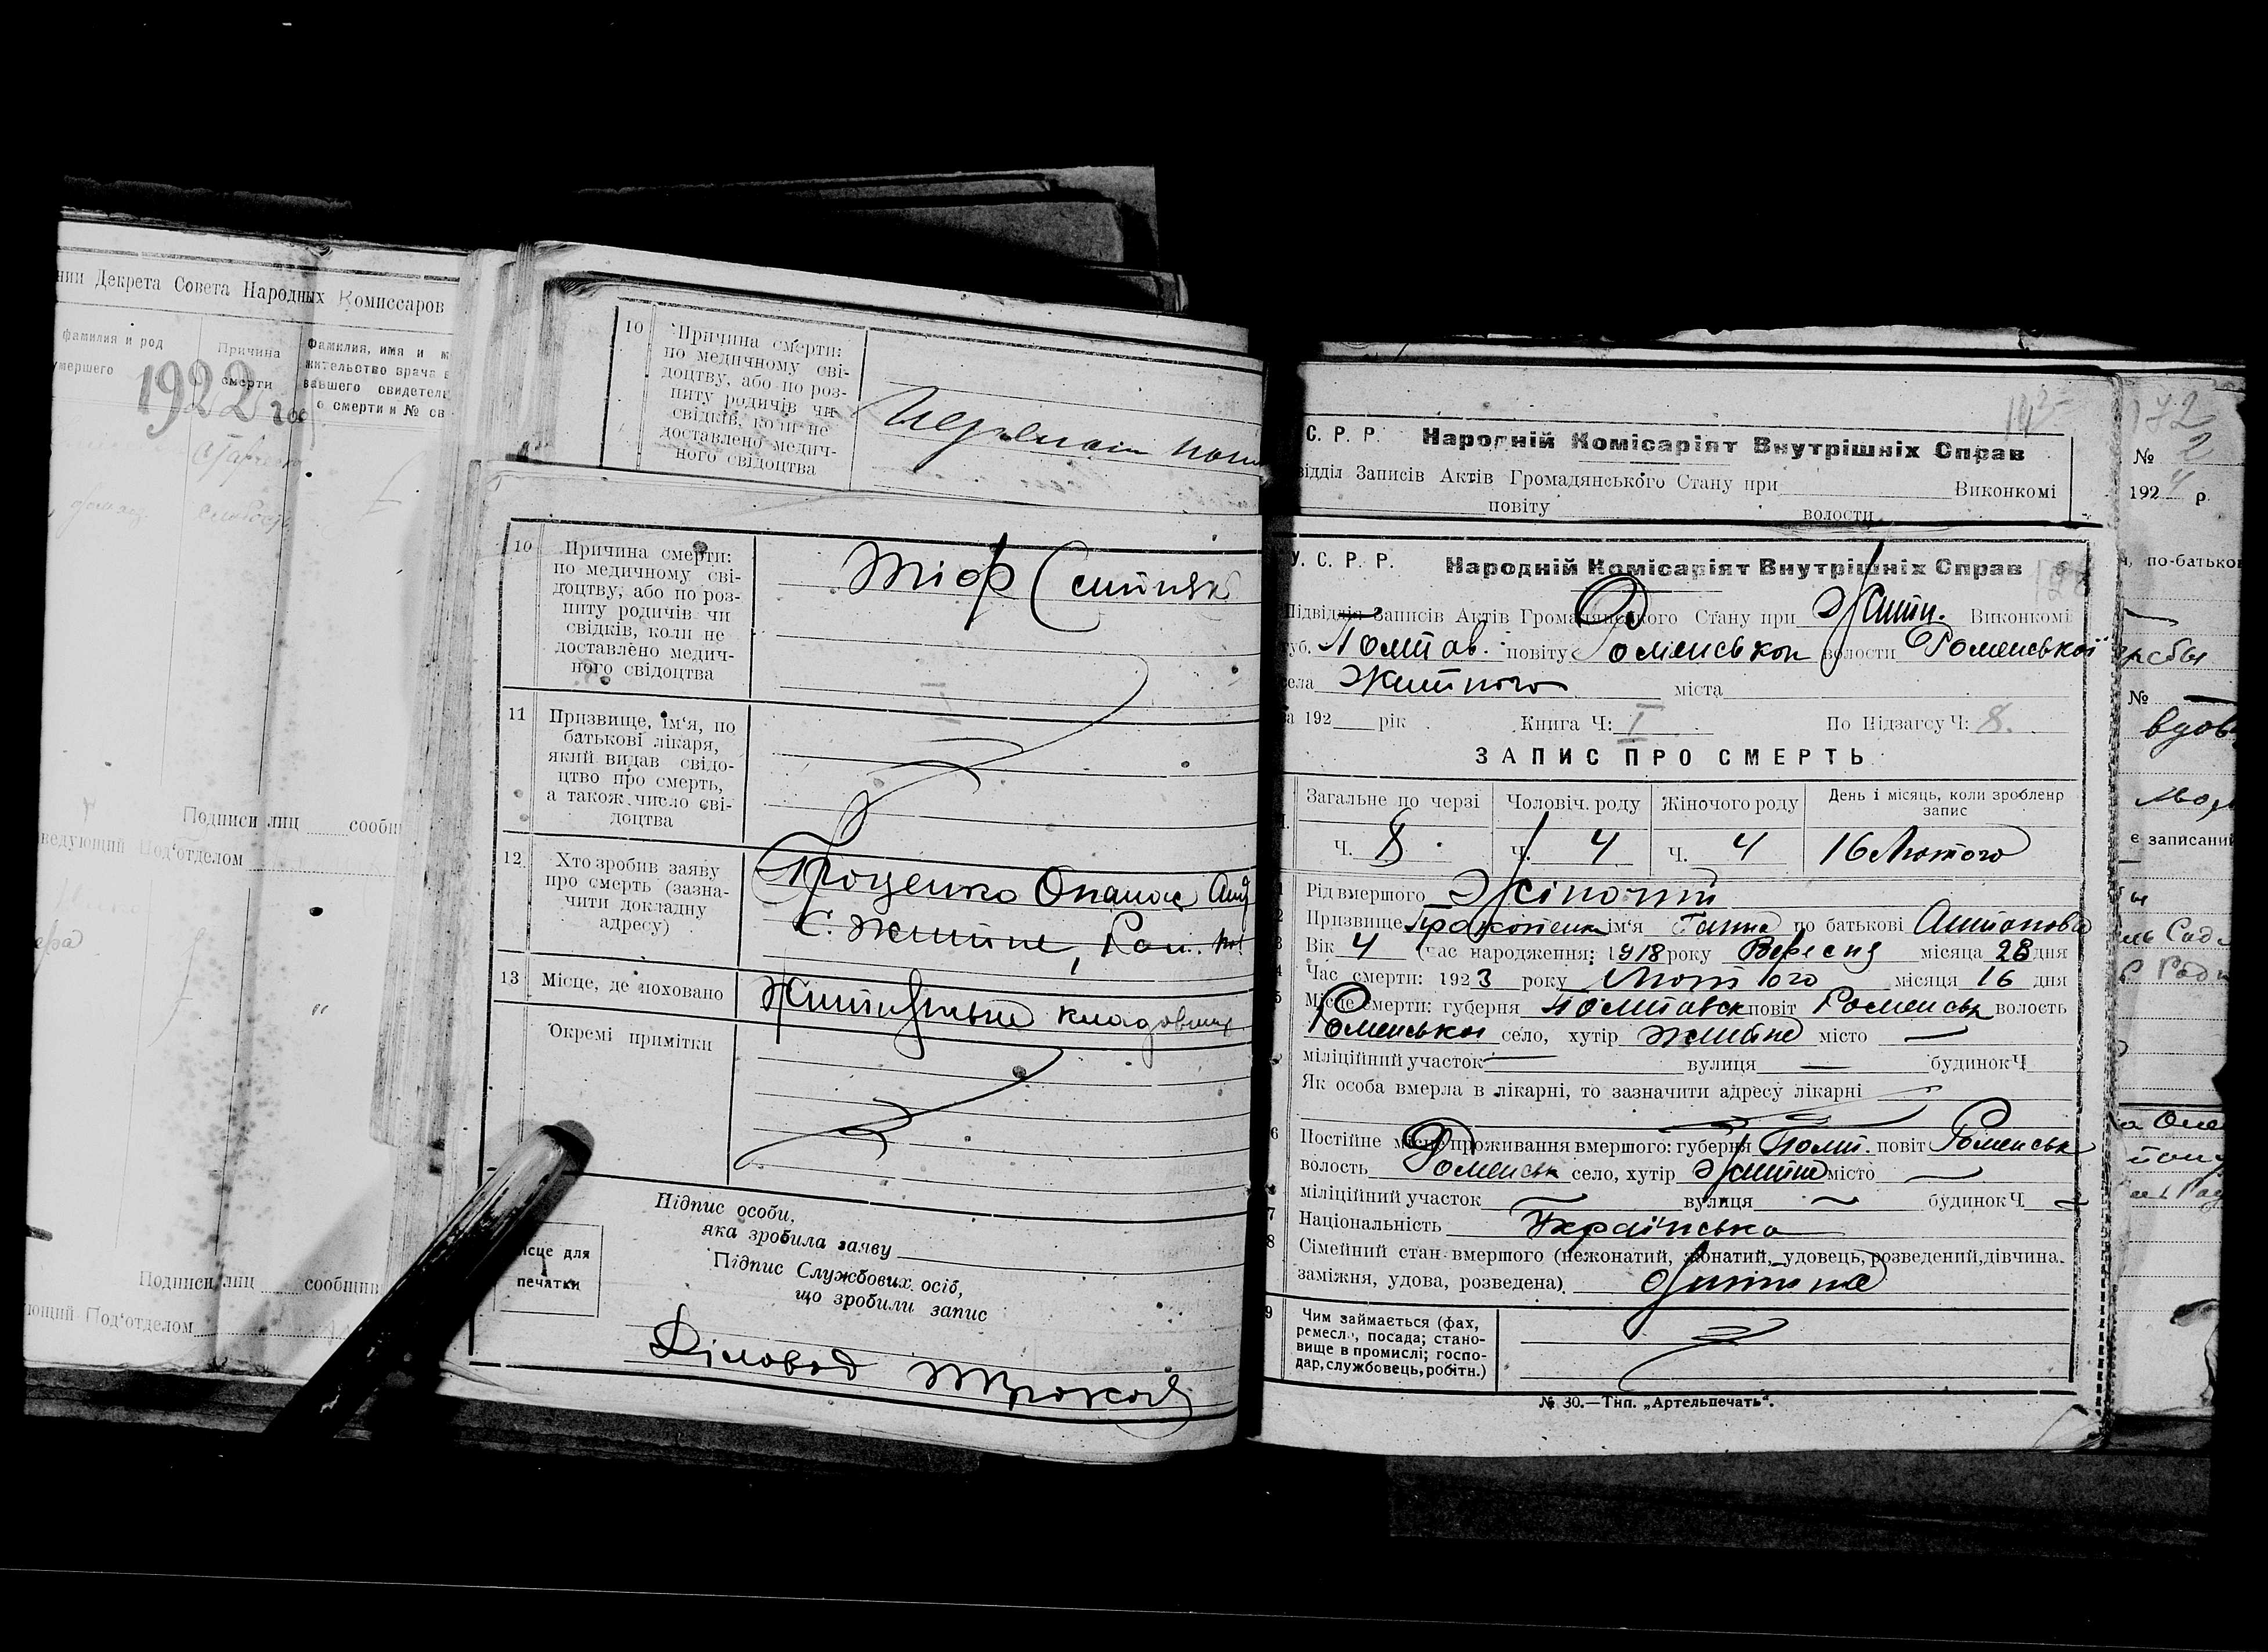 нии Декрета Совета Народных Комиссаров
фамилия и род
умершего
Причина
смерти
фамилия, имя и м
жительство врача в
вавшего свидетель
о смерти и № св
1922 год
Подписи лиц сообщи
ведующий Под'отделом
Подписи лиц сообщив
ющий Под'отделом
10 Причина смерти:
по медичному сві-
доцтву, або по роз-
питу родичів чи
свідків, коли не
доставлено медич-
ного свідоцтва
10 Причина смерти:
по медичному сві-
доцтву, або по роз-
питу родичів чи
свідків, коли не
доставлено медич-
ного свідоцтва
Тіф (
11 Призвище, ім'я, по
батькові лікаря,
який видав свідо-
цтво про смерть,
а також число сві-
доцтва
12 Хто зробив заяву
про смерть (зазна-
чити докладну
адресу)
Проценко Опанас Анд
с. Житне, Ром.
13 Місце, де поховано
кладовищ
Окремі примітки
Підпис особи,
яка зробила заяву
Підпис Службових осіб,
що зробили запис
ісце для
печатки
Діловод
С. Р. Р. Народній Комісаріят Внутрішніх Справ
відділ Записів Актів Громадянського Стану при Виконкомі
повіту волости
У. С. Р. Р. Народній Комісаріят Внутрішніх Справ
Підвідділ Записів Актів Громадянського Стану при Житн. Виконкомі
губ. Полтав. повіту Роменськои волости Роменської
села Житного міста
а 192 рік Книга Ч: I По Підзагсу Ч: 8.
ЗАПИС ПРО СМЕРТЬ
Загальне по черзі Чоловіч. роду Жіночого роду День і місяць, коли зроблено
запис
Ч. 8 Ч. 4 Ч. 4 16 Лютого
1 Рід вмершого Жіночий
2 Призвище ім'я Ганна по батькові Антонова
3 Вік 4 (час народження: 1918 року Вересня місяца 28 дня
4 Час смерти: 1923 року Лютого місяця 16 дня
5 Місце смерти: губерня Полтавск повіт Роменськ волость
Роменськои село, хутір Житне місто —
міліційний участок — вулиця — будинок Ч.
Як особа вмерла в лікарні, то зазначити адресу лікарні
6 Постійне місце проживання вмершого: губерня Полт. повіт Роменськ
волость Роменськ село, хутір Житне місто —
міліційний участок — вулиця ~ будинок Ч. ~
7 Національність Українська
8 Сімейний стан вмершого (нежонатий, жонатий, удовець, розведений, дівчина.
заміжня, удова, розведена). Дитина
9 Чим займається (фах,
ремесло, посада; стано-
вище в промислі; госпо-
дар, службовець, робітн.)
№ 30.—Тип. „Артельпечать“.
172
№ 2
192 р.
по-батьков
№ —
вдов
є записаний